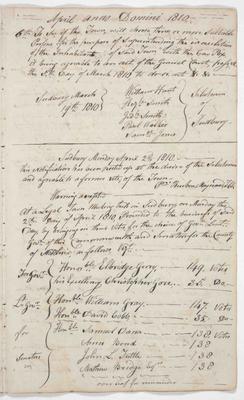 April anno Domini 1810.
6th To see if the Town will choose three or more suitable
persons for the purpose of Superintending the inoculation
of the Inhabitants of said Town with the Cow Pox
it being agreeable to an act of the General Court, passed
the 6th Day of March 1810 to do or act &c &c
Sudbury March
19th 1810
William Hunt
Smith
Smith
Paul Walker
Jones
Selectmen
of
Sudbury.
Sudbury Monday April 2d 1810.
this notification has been posted up at the desire of the Selectmen
and agreeable to a former vote of the Town.
Pr Reuben Maynard
Warning accepted
At a Legal Town Meeting held in Sudbury on Monday the
2d Day of April 1810 Proceeded to the business of said
Day by bringing in their votes for the choice of Govr. Lieut.
Govr. of this Commonwealth and Senators for the County
of Middlesex as follows
For Govr.
Honorble Elbridge Gerry 149. Votes
his Excellency Christopher Gore 35. Do
Lt. Govr.
Honble. William Gray 147. Votes
Honble David Cobb 35. Do
for
Senators
Honble Samuel Dana 138 Votes
Amos Bond 138
John L. Tuttle 138
Mathew Bridge Esqr. 138
over leaf for remainder